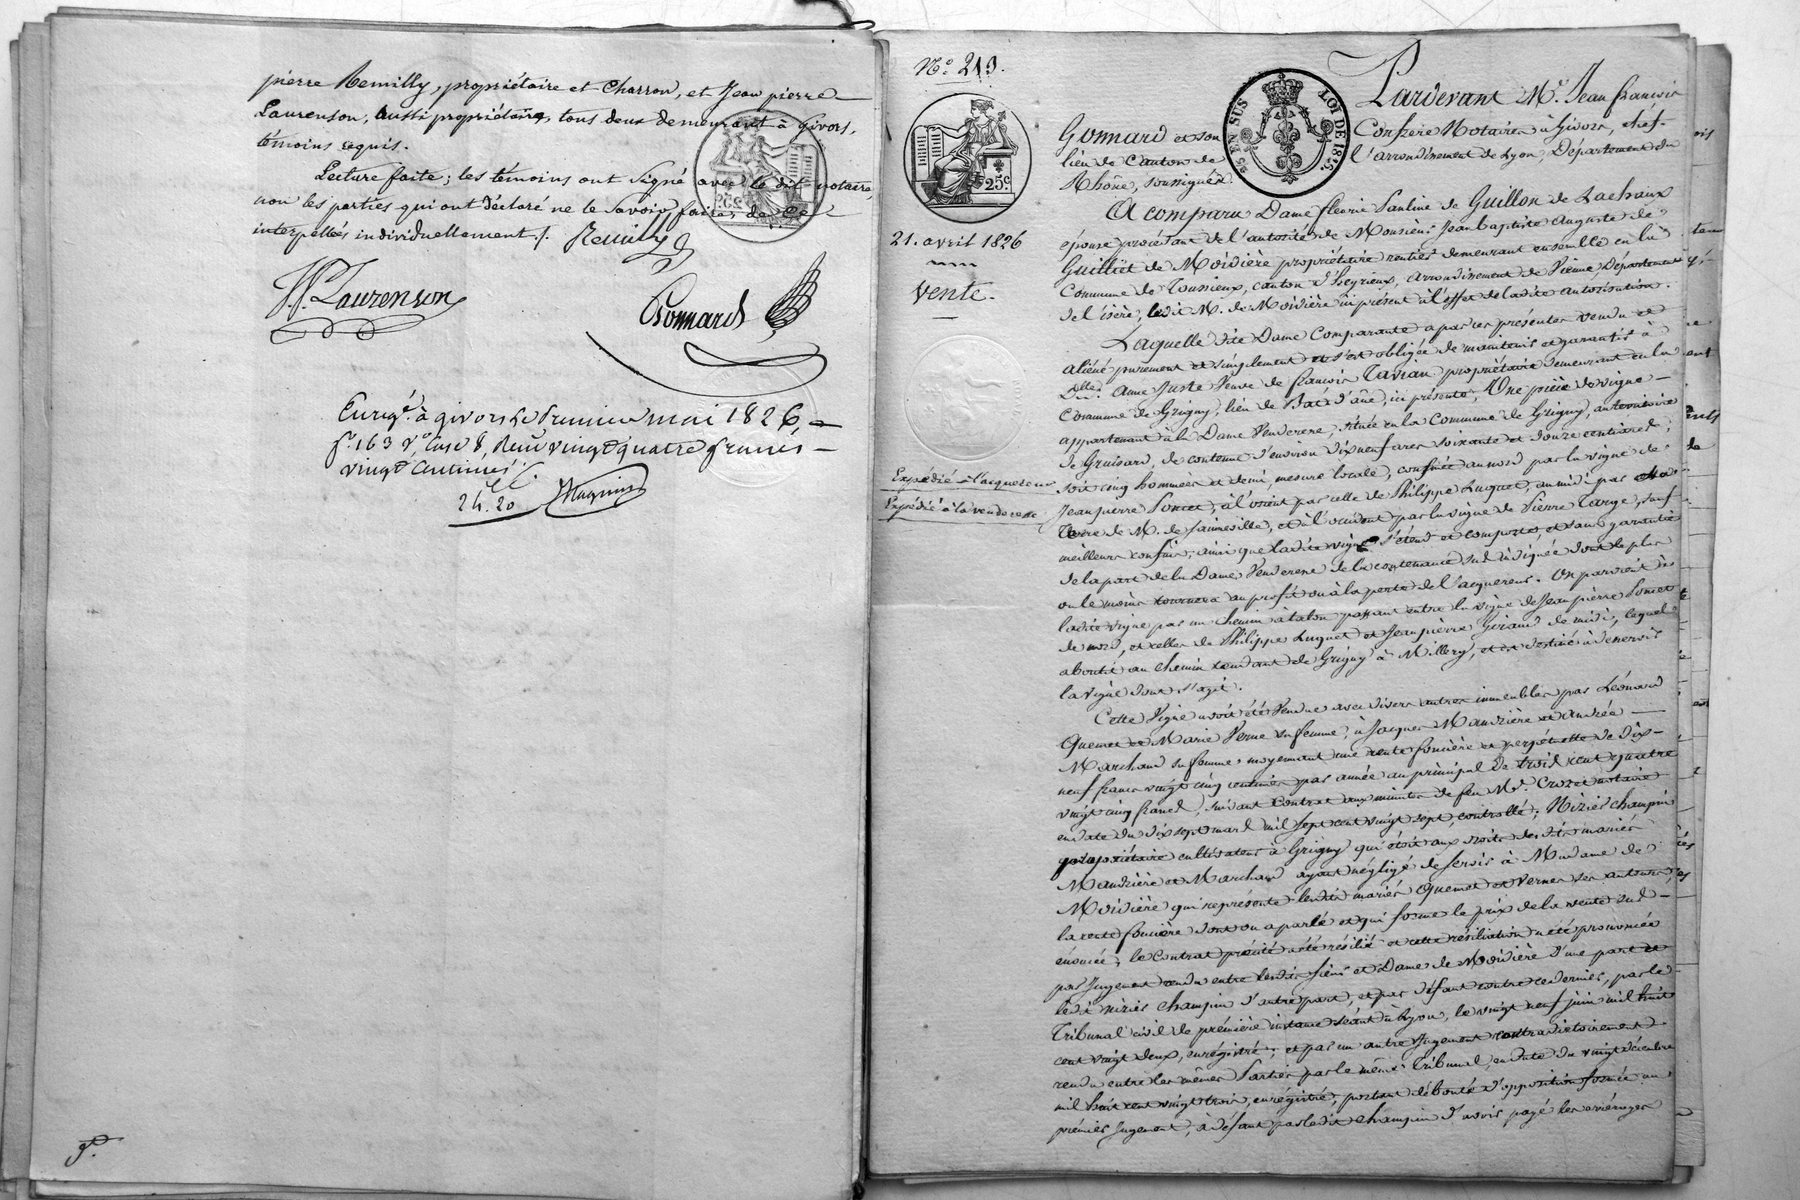 pierre Remilly, propriétaire et Charron, et Jean pierre
Laurenson, aussi propriétaire, tous deux demeurant à Givors,
témoins requis.
Lecture faite; les témoins ont signé avec le dit notaire,
non les parties qui ont déclaré ne le savoir faire, de ce
interpellés individuellement.
Remilly
J. P. Laurenson
Gonnard
Enregé. à givors le Premier mai 1826,
fo. 163 vo. Case 8, Reçu vingt quatre francs
vingt centimes.
24.20
No. 213.
25c
25 EN SUS
LOI DE 1816.
21. avril 1826
Vente.
Expédié à l'acquereur
Expédié à la venderesse
Pardevant Me. Jean françois
Gonnard et son Confrère Notaires à Givors, chef-
lieu de Canton de l'arrondissement de Lyon, Département du
Rhône, soussignés.
A comparu Dame fleurie Pauline de Guillon de Lachaux
épouse procédant de l'autorité de Monsieur Jean baptiste Auguste de
Guilliet de Moidière propriétaire rentier demeurant ensemble en la
Commune de Toussieux, canton d'heyrieux, arrondissement de Vienne, Département
de l'isère, ledit M. de Moidière ici présent à l'effet de ladite autorisation.
Laquelle dite Dame Comparante a par ces présentes vendu et
aliéné purement et simplement et s'est obligée de maintenir et garantir à
Anne Juste Veuve de françois Tavian propriétaire demeurant en la
Commune de Grigny, lieu de Bat-d'âne, ici présente, Une pièce de vigne
appartenant à la Dame Venderesse, située en la Commune de Grigny, au territoire
de Gruisard, de contenue d'environ dix neuf ares soixante et douze centiares;
soit cinq hommées et demi, mesure locale, confinée au nord par la vigne de
Jean pierre Poncet, à l'orient par celle de Philippe Luquet, au midi par
terre de M. de Jaineville, et à l'occident par la vigne de Pierre Targe, sauf
meilleurs confins; ainsi que ladite vigne s'étend et comporte, et sans garantie
de la part de la Dame Venderesse de la contenance sus indiquée dont le plus
ou le moins tournera au profit ou à la perte de l'acquereur. On parvient à
ladite vigne par un chemin à talon passant entre la vigne de Jean pierre Poncet
de nord, et celles de Philippe Luquet et Jean pierre Giraud de midi, lequel
aboutit au chemin tendant de Grigny à Millery, et est destiné à desservir
la vigne dont s'agit.
Cette Vigne avoit été Vendue avec divers autres immeubles par Léonard
Quemet et Marie Verne sa femme, à Jacques Maudrière et Andrée
Marchand sa femme, moyennant une rente foncière et perpétuelle de dix-
neuf francs vingt cinq centimes par année au principal de trois cent quatre
vingt cinq francs, suivant contrat aux minutes de feu Me. Crozet notaire
en date du dix sept mars mil sept cent vingt sept, controllé; Nizier Champin
propriétaire cultivateur à Grigny qui étoit aux droits desdits mariés
Maudrière et Marchand ayant négligé de servir à Madame de
Moidière qui représente lesdits mariés Quemet et Verne ses auteurs,
la rente foncière dont on a parlé et qui forme le prix de la vente sus-
énoncée, le contrat précité a été résilié et cette résiliation a été prononcée
par jugement rendu entre lesdits Sieur et Dame de Moidière d'une part et
ledit Nizier Champin d'autre part, et par défaut contre ce dernier, par le
Tribunal civil de première instance séant à Lyon, le vingt neuf juin mil huit
cent vingt deux, enregistré; et par un autre jugement contradictoirement
rendu entre les mêmes Parties par le même Tribunal, en date du vingt décembre
mil huit cent vingt trois, enregistré, portant débouté d'opposition formée au
premier jugement, à défaut par ledit Champin d'avoir payé les arrérages